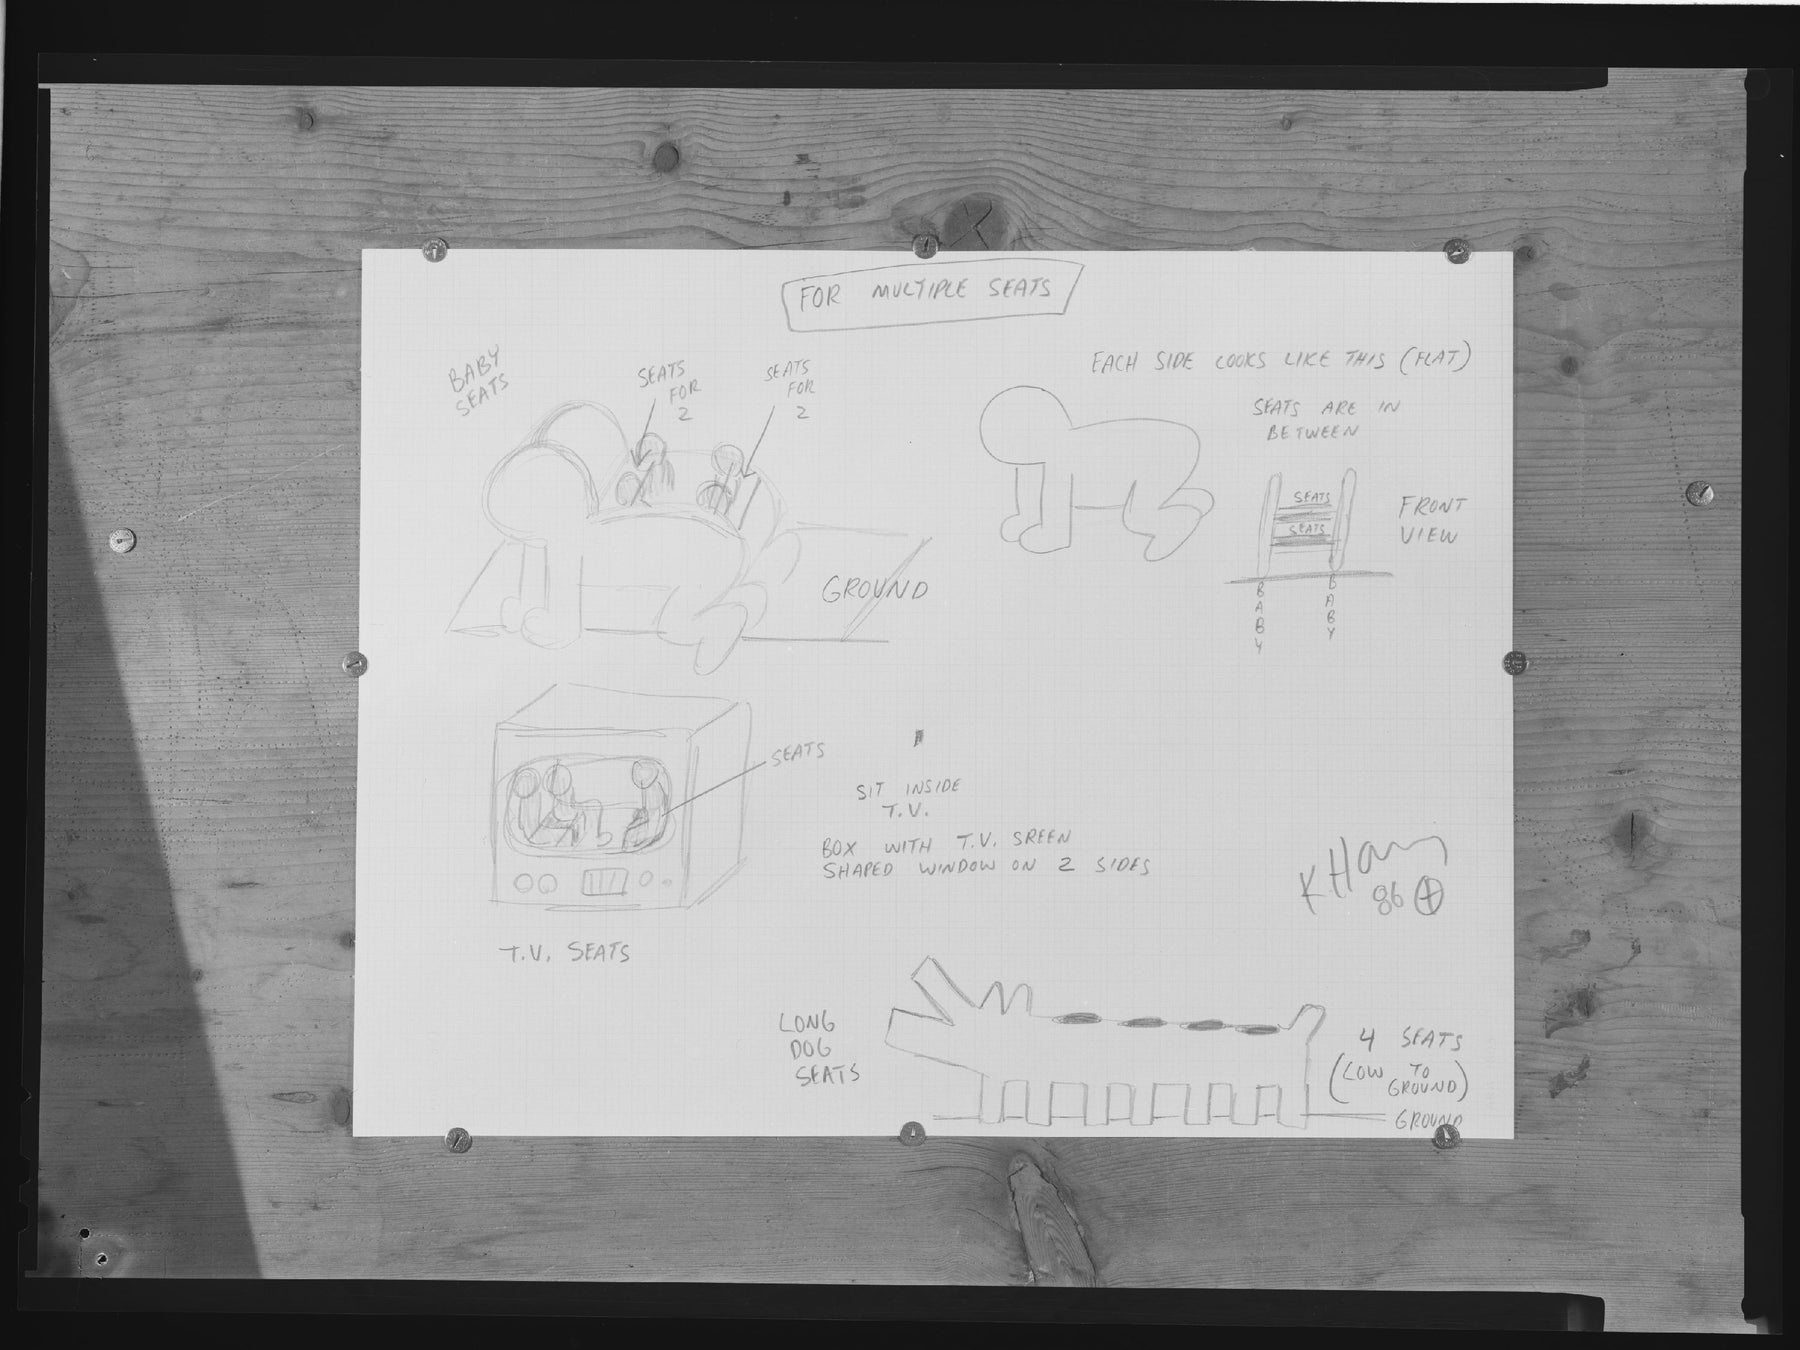 FOR MULTIPLE SEATS
BABY
SEATS
SEATS
FOR
2
SEATS
FOR
2
GROUND
EACH SIDE LOOKS LIKE THIS (FLAT)
SEATS ARE IN
BETWEEN
SEATS
SEATS
FRONT
VIEW
BABY
BABY
SEATS
T.V. SEATS
SIT INSIDE
T.V.
BOX WITH T.V. SREEN
SHAPED WINDOW ON 2 SIDES
K Haring
86
LONG
DOG
SEATS
4 SEATS
(LOW TO
GROUND)
GROUND